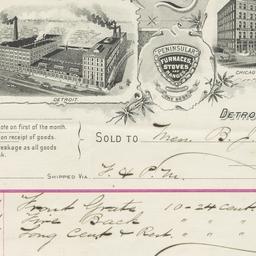 PENINSULAR
FURNACES,
STOVES
AND
RANGES
DETROIT.
CHICAG
DETRO
ote on first of the month.
on receipt of goods.
reakage as all goods
k.
SOLD TO
SHIPPED VIA F. & P. M.
Front Grate 10-24 cent
Fire Back " " "
Long Cent & Rest " " "